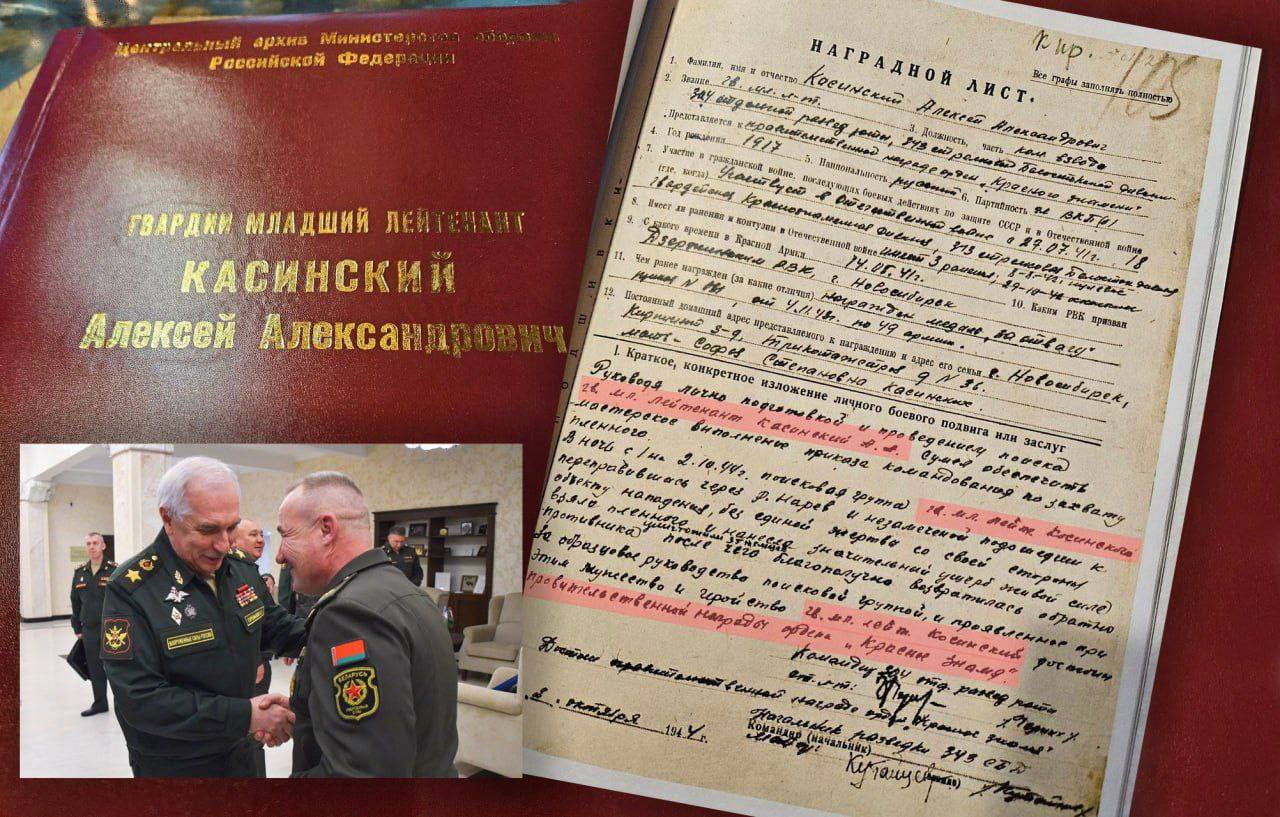 Центральный архив Министерства обороны
Российской Федерации
ГВАРДИИ МЛАДШИЙ ЛЕЙТЕНАНТ
КАСИНСКИЙ
Алексей Александрович
ВООРУЖЕННЫЕ СИЛЫ РОССИИ
БЕЛАРУСЬ
НАГРАДНОЙ ЛИСТ
Все графы заполнять полностью
1. Фамилия, имя и отчество Касинский Алексей Александрович
2. Звание гв. мл. л-т. 3. Должность, часть ком. взвода
344 отдельной развед роты, 343 стрелковой Белостокской дивизии
Представляется к правительственной награде орден "Красного знамени"
4. Год рождения 1917 5. Национальность русский 6. Партийность чл. ВКП(б)
7. Участие в гражданской войне, последующих боевых действиях по защите СССР и в Отечественной войне
(где, когда) Участвует в Отечественной войне с 29.07.41г. 18
Гвардейская Краснознаменная дивизия 343 стрелковая Белосток. дивиз
8. Имеет ли ранения и контузии в Отечественной войне имеет 3 ранения,
9. С какого времени в Красной Армии 14.05.41г. 10. Каким РВК призван
Дзержинским РВК г. Новосибирск
11. Чем ранее награжден (за какие отличия) награжден медаль "За отвагу"
от 4.11.43г. по 49 армии.
12. Постоянный домашний адрес представляемого к награждению и адрес его семьи г. Новосибирск,
3-я Трикотажстроя д N 36.
мать- Софья Степановна Касинских.
I. Краткое, конкретное изложение личного боевого подвига или заслуг
Руководя лично подготовкой и проведением поиска
гв. мл. лейтенант Касинский А.А. сумел обеспечить
мастерское выполнение приказа командования по захвату
пленного.
В ночь с 1 на 2.10.44г. поисковая группа гв. мл. лейт Косинского
переправившись через р. Нарев и незамеченной подошедши к
объекту нападения, без единой жертвы со своей стороны
взяла пленного и нанесла значительный ущерб живой силе
противника после чего благополучно возвратилась обратно
За образцовое руководство поисковой группой и проявленное при
этом мужество и геройство гв. мл. лейт. Косинский достоин
правительственной награды ордена "Красное Знамя".
Командир 344 отд. развед роты
ст. л-т:
Достоин правительственной награды орден "Красное знамя"
Начальник разведки 343 СБД
октября 1944 г. Командир (начальник)